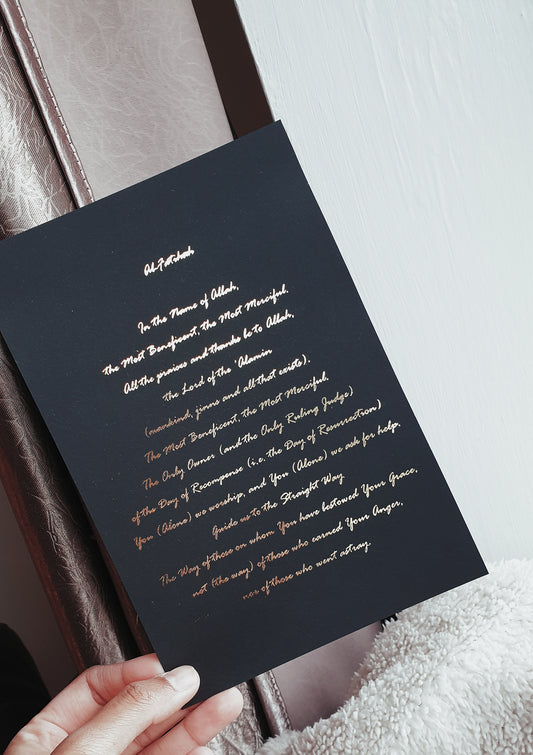 Al-Fatihah
In the Name of Allah,
the Most Beneficent, the Most Merciful.
All the praises and thanks be to Allah,
the Lord of the 'Alamin
(mankind, jinns and all that exists).
The Most Beneficent, the Most Merciful.
The Only Owner (and the Only Ruling Judge)
of the Day of Recompense (i.e. the Day of Resurrection)
You (Alone) we worship, and You (Alone) we ask for help.
Guide us to the Straight Way
The Way of those on whom You have bestowed Your Grace,
not (the way) of those who earned Your Anger,
nor of those who went astray.